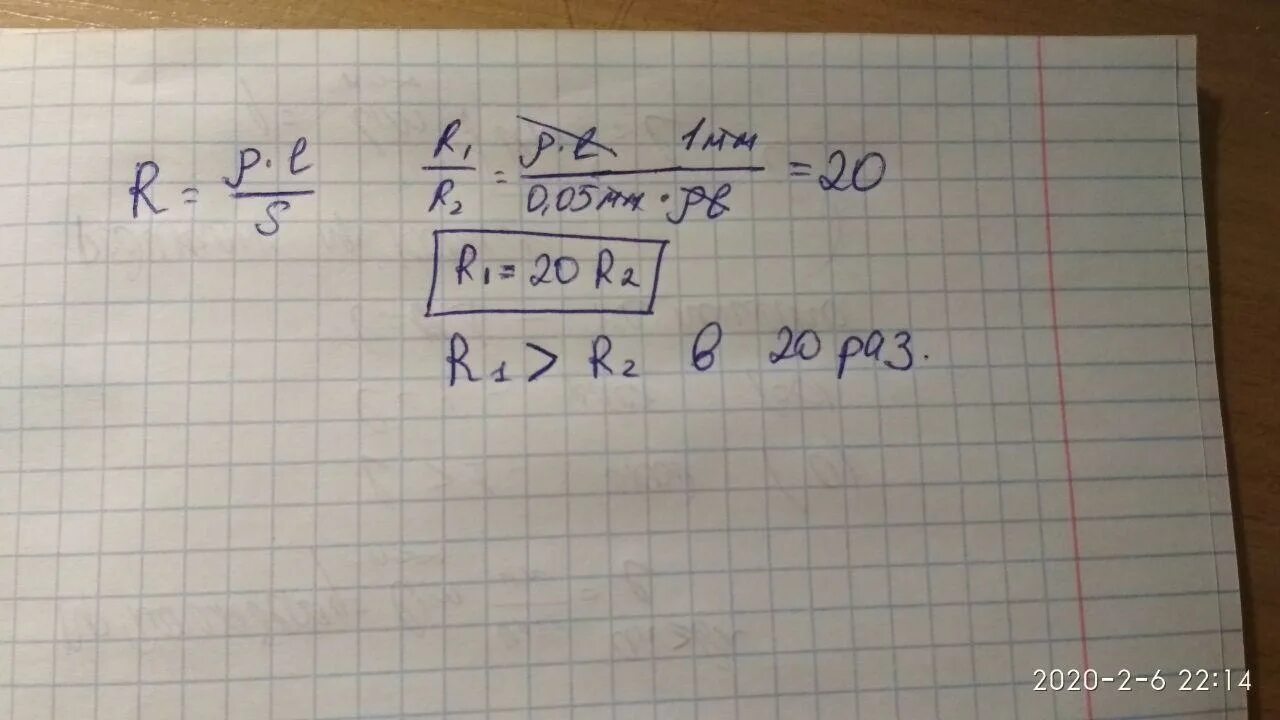 R = ρ·ℓ / S
R₁ / R₂ = ρ·ℓ 1мм / 0,05мм·ρℓ = 20
R₁ = 20 R₂
R₁ > R₂ в 20 раз.
2020-2-6 22:14